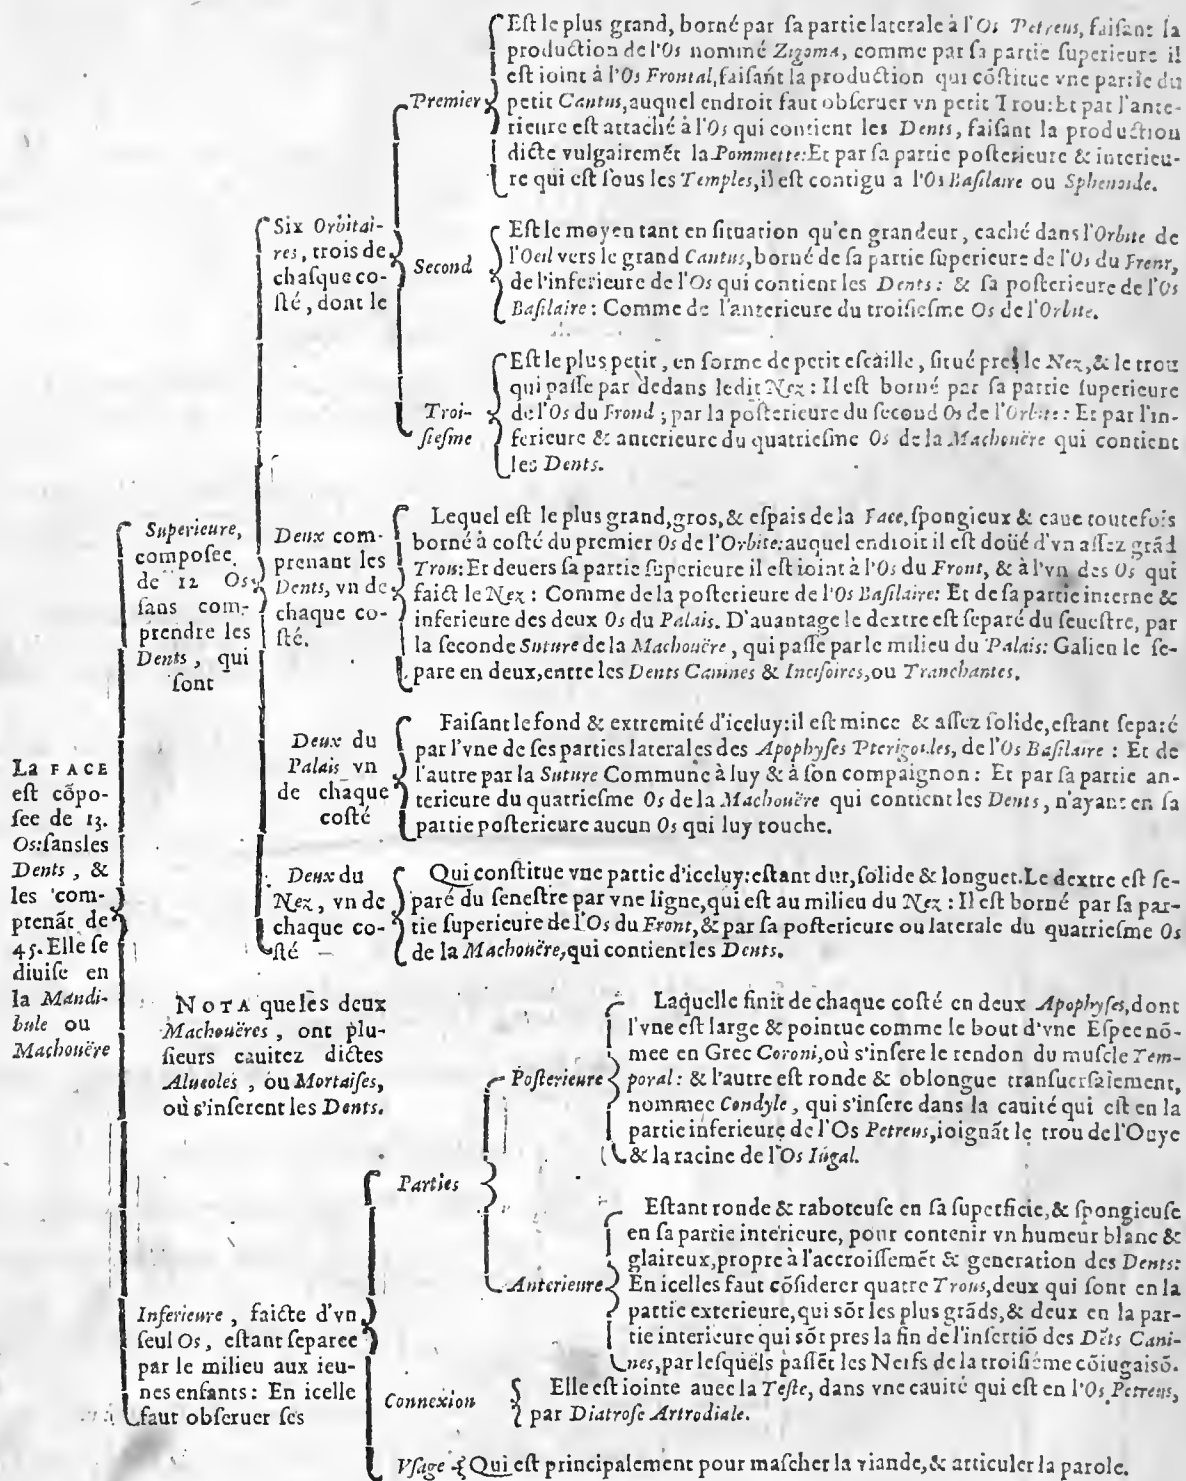 La FACE
est cõpo-
see de 13.
Os: sans les
Dents, &
les com-
prenãt de
45. Elle se
diuise en
la Mandi-
bule ou
Machouëre
Superieure,
composee
de 12 Os,
sans com-
prendre les
Dents, qui
sont
Six Orbitai-
res, trois de
chasque co-
sté, dont le
Premier
Est le plus grand, borné par sa partie laterale à l'Os Petreus, faisant la
production de l'Os nommé Zigoma, comme par sa partie superieure il
est ioint à l'Os Frontal, faisant la production qui cõstitue vne partie du
petit Cantus, auquel endroit faut obseruer vn petit Trou: Et par l'ante-
rieure est attaché à l'Os qui contient les Dents, faisant la production
dicte vulgairemẽt la Pommette: Et par sa partie posterieure & interieu-
re qui est sous les Temples, il est contigu a l'Os Basilaire ou Sphenoide.
Second
Est le moyen tant en situation qu'en grandeur, caché dans l'Orbite de
l'Oeil vers le grand Cantus, borné de sa partie superieure de l'Os du Front,
de l'inferieure de l'Os qui contient les Dents: & sa posterieure de l'Os
Basilaire: Comme de l'anterieure du troisiesme Os de l'Orbite.
Troi-
siesme
Est le plus petit, en forme de petit escaille, situé pres le Nez, & le trou
qui passe par dedans ledit Nez: Il est borné par sa partie superieure
de l'Os du Frond; par la posterieure du second Os de l'Orbite: Et par l'in-
ferieure & anterieure du quatriesme Os de la Machouëre qui contient
les Dents.
Deux com-
prenant les
Dents, vn de
chaque co-
sté.
Lequel est le plus grand, gros, & espais de la Face, spongieux & caue toutefois
borné à costé du premier Os de l'Orbite: auquel endroit il est doüé d'vn assez grãd
Trou: Et deuers sa partie superieure il est ioint à l'Os du Front, & à l'vn des Os qui
faict le Nez: Comme de la posterieure de l'Os Basilaire: Et de sa partie interne &
inferieure des deux Os du Palais. D'auantage le dextre est separé du senestre, par
la seconde Suture de la Machouëre, qui passe par le milieu du Palais: Galien le se-
pare en deux, entre les Dents Canines & Incisoires, ou Tranchantes.
Deux du
Palais vn
de chaque
costé
Faisant le fond & extremité d'iceluy: il est mince & assez solide, estant separé
par l'vne de ses parties laterales des Apophyses Pterigoides, de l'Os Basilaire: Et de
l'autre par la Suture Commune à luy & à son compaignon: Et par sa partie an-
terieure du quatriesme Os de la Machouëre qui contient les Dents, n'ayant en sa
partie posterieure aucun Os qui luy touche.
Deux du
Nez, vn de
chaque co-
sté
Qui constitue vne partie d'iceluy: estant dur, solide & longuet. Le dextre est se-
paré du senestre par vne ligne, qui est au milieu du Nez: Il est borné par sa par-
tie superieure de l'Os du Front, & par sa posterieure ou laterale du quatriesme Os
de la Machouëre, qui contient les Dents.
NOTA que les deux
Machouëres, ont plu-
sieurs cauitez dictes
Alueoles, ou Mortaises,
où s'inserent les Dents.
Inferieure, faicte d'vn
seul Os, estant separee
par le milieu aux ieu-
nes enfants: En icelle
faut obseruer ses
Parties
Posterieure
Laquelle finit de chaque costé en deux Apophyses, dont
l'vne est large & pointue comme le bout d'vne Espee nõ-
mee en Grec Coroni, où s'insere le tendon du muscle Tem-
poral: & l'autre est ronde & oblongue transuersalement,
nommee Condyle, qui s'insere dans la cauité qui est en la
partie inferieure de l'Os Petreus, ioignãt le trou de l'Ouye
& la racine de l'Os Iugal.
Anterieure
Estant ronde & raboteuse en sa superficie, & spongieuse
en sa partie interieure, pour contenir vn humeur blanc &
glaireux, propre à l'accroissemẽt & generation des Dents:
En icelles faut cõsiderer quatre Trous, deux qui sont en la
partie exterieure, qui sõt les plus grãds, & deux en la par-
tie interieure qui sõt pres la fin de l'insertiõ des Dẽts Cani-
nes, par lesquels passẽt les Nerfs de la troisiéme cõiugaisõ.
Connexion
Elle est iointe auec la Teste, dans vne cauité qui est en l'Os Petreus,
par Diatrose Artrodiale.
Vsage
Qui est principalement pour mascher la viande, & articuler la parole.